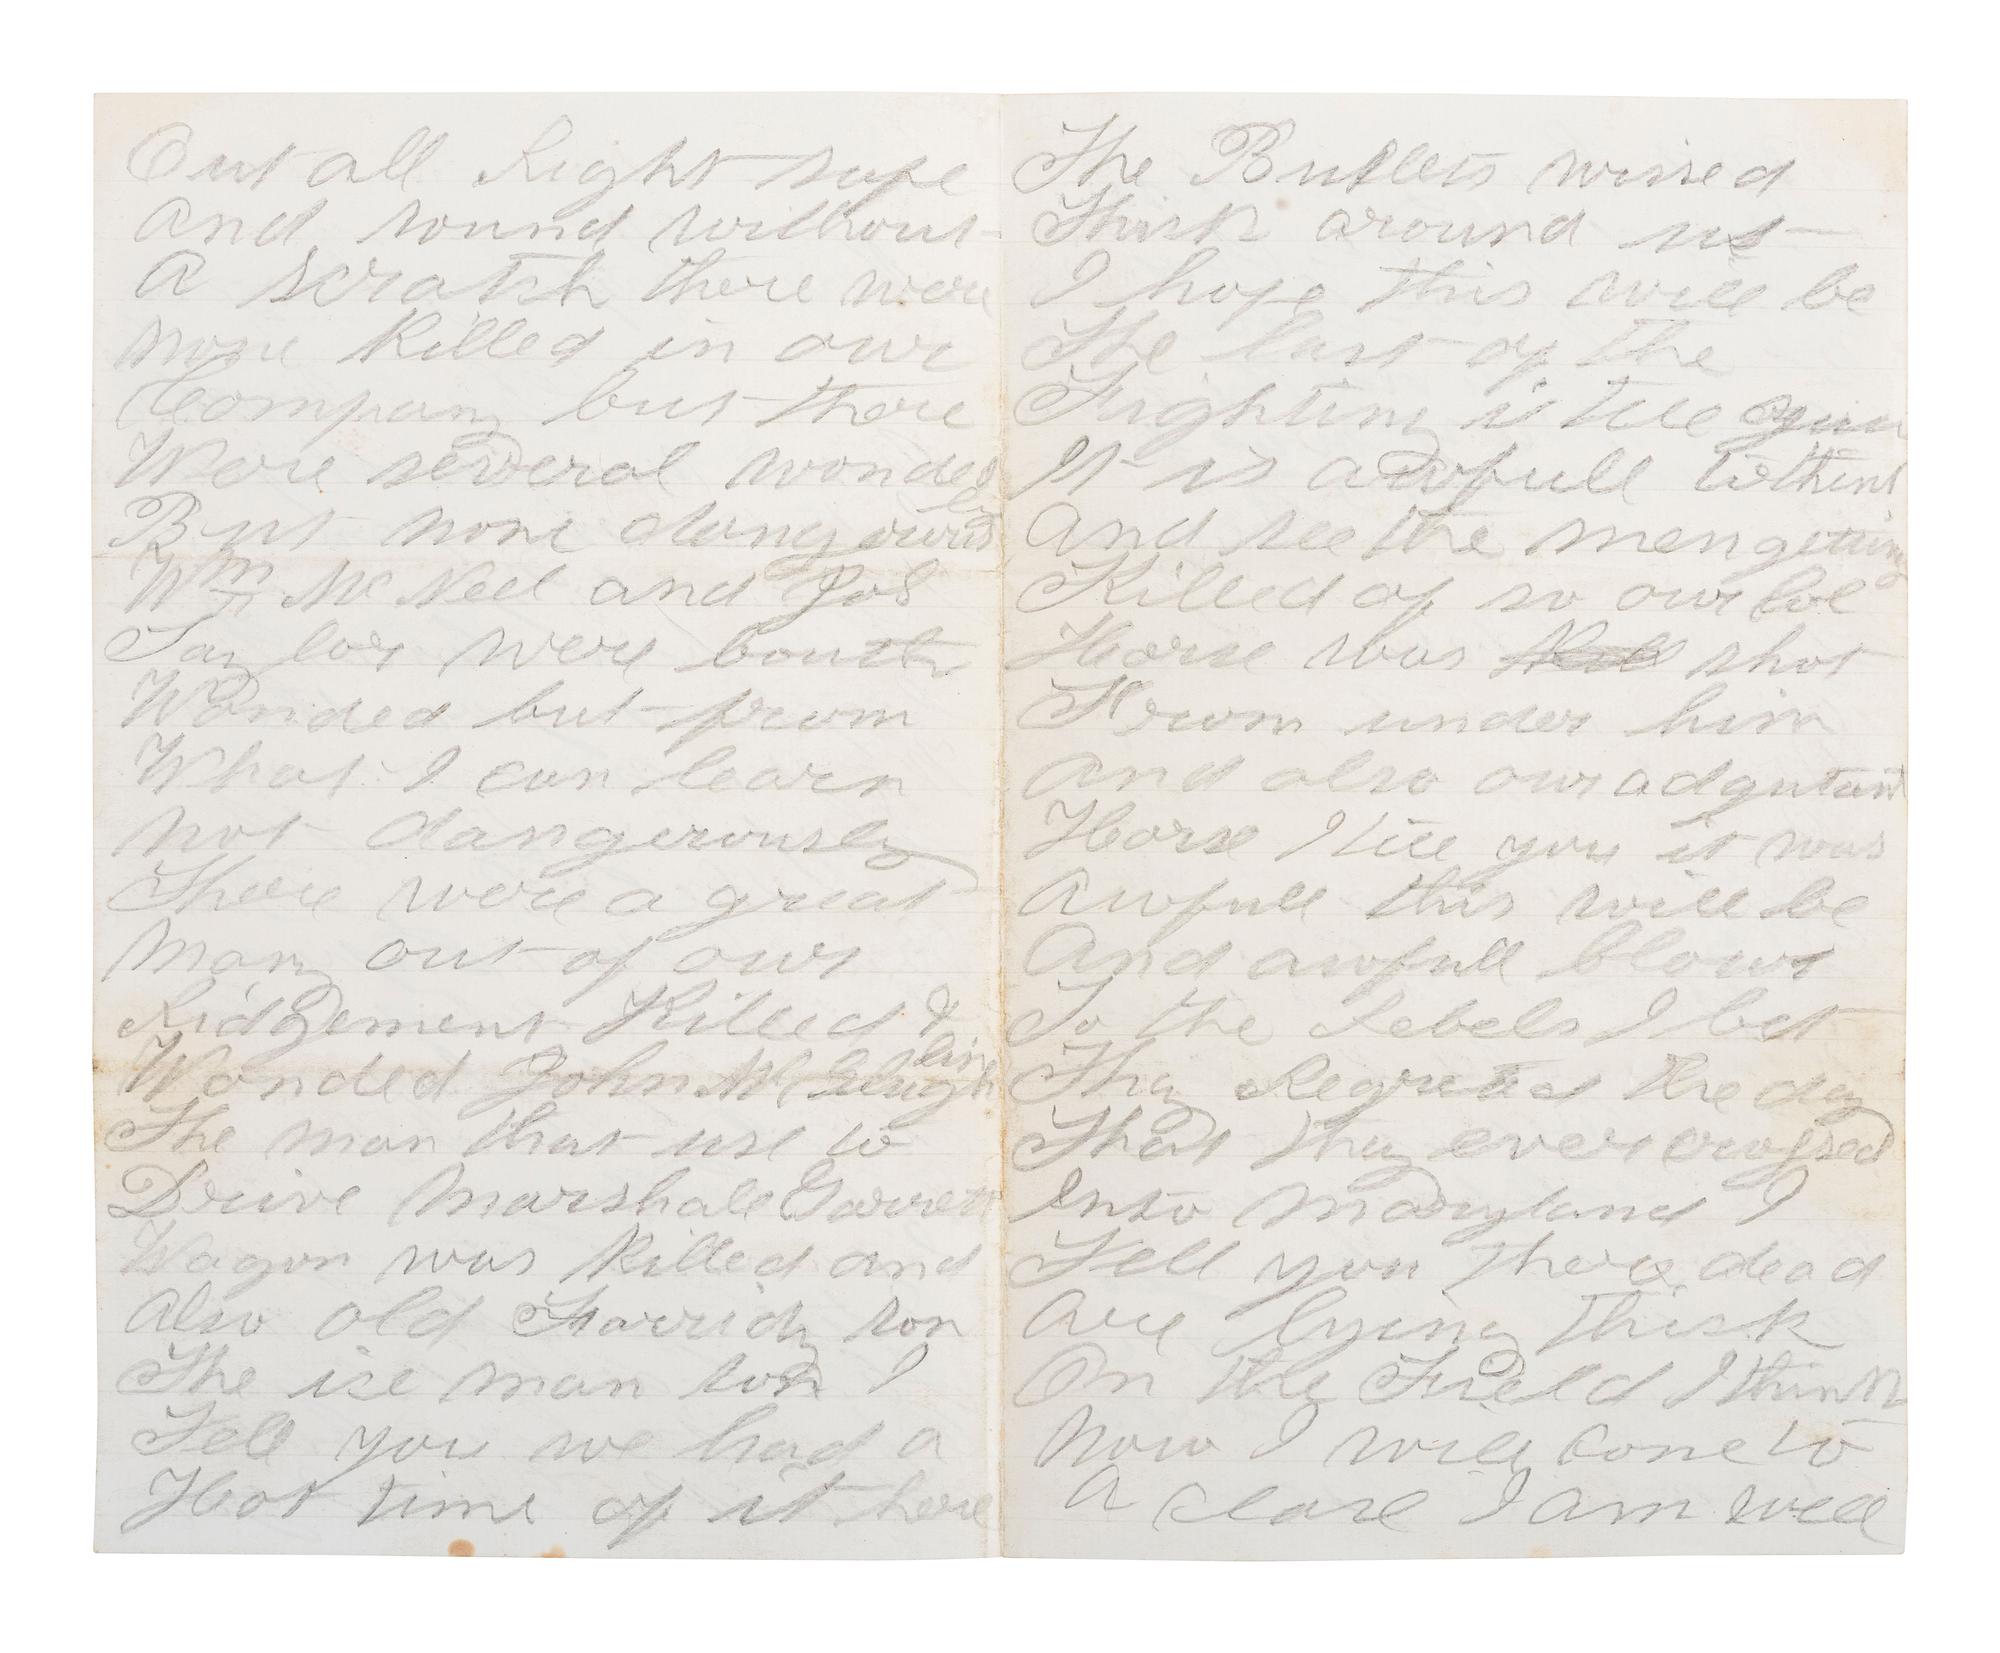 Out all Right safe
and sound without
A scratch there were
none Killed in our
Company but there
Were several wonded
But none dangerously
Wm McNeel and Job
Taylor were bouth
Wonded but from
What I can learn
not dangerously
There were a great
Many out of our
Ridgement Killed &
Wonded John
The man that use to
Drive Marshall Garrett
Wagon was Killed and
Also old son
The ise man son I
Tell you we had a
Hot time of it here
The Bullets wised
Thick around us
I hope this will be
The last of the
Fighting i tell you
It is awfull to think
And see the men getting
Killed of so our Col
Horse was shot
From under him
And also our adgutant
Horse I tell you it was
Awfull this will be
And awfull blows
To the Rebels I bet
Thay Regreted the day
That thay ever crossed
Into Maryland I
Tell you there dead
Are lying thick
On the Field I think
Now I will come to
A close I am well